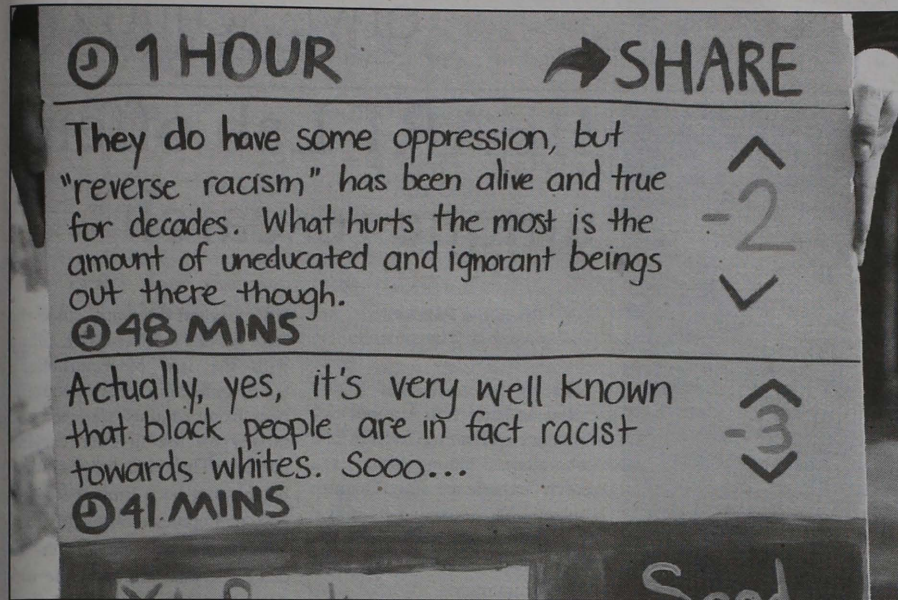 1 HOUR SHARE
They do have some oppression, but
"reverse racism" has been alive and true
for decades. What hurts the most is the
amount of uneducated and ignorant beings
out there though.
-2
48 MINS
Actually, yes, it's very well known
that black people are in fact racist
towards whites. Sooo...
-3
41 MINS
Send